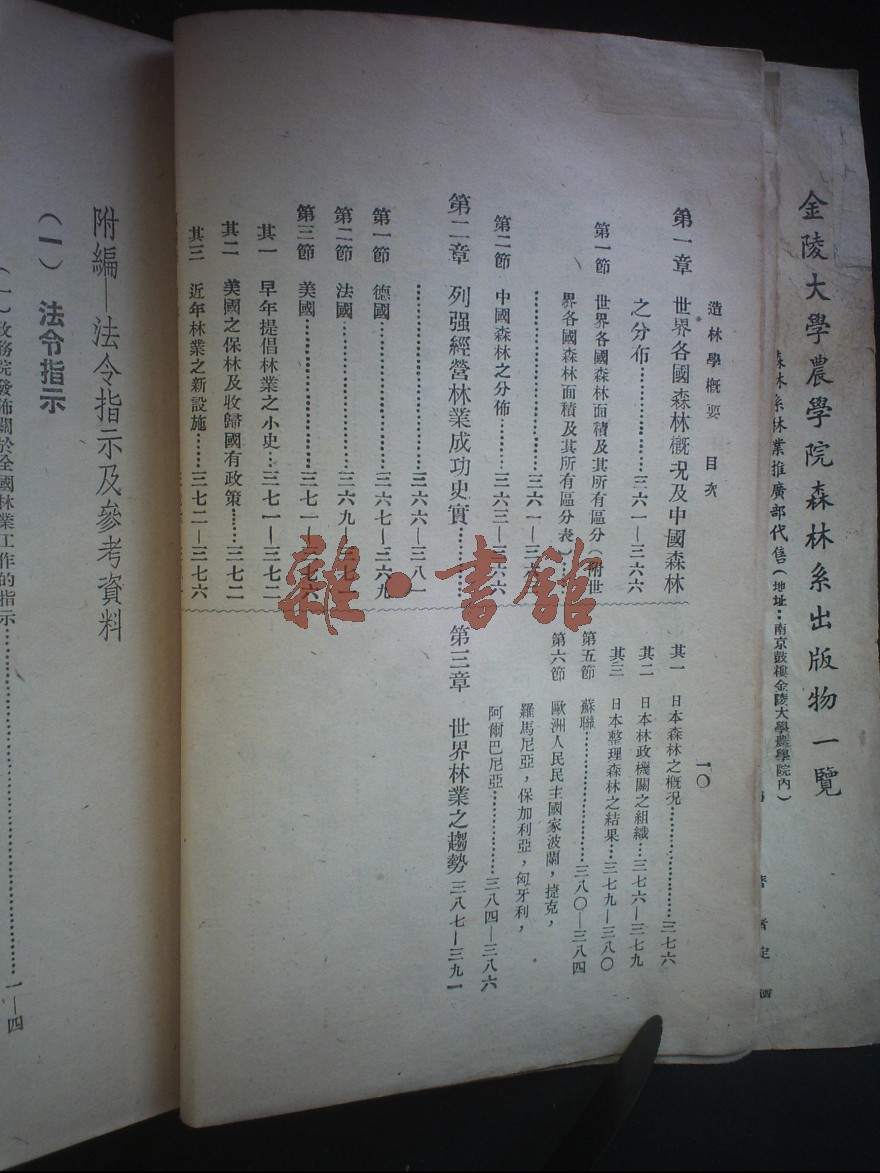 金陵大學農學院森林系出版物一覽
森林系林業推廣部代售(地址:南京鼓樓金陵大學農學院內)
著者定價
造林學概要 目次 一〇
第一章 世界各國森林概況及中國森林
之分布……三六一—三六六
第一節 世界各國森林面積及其所有區分(附世
界各國森林面積及其所有區分表)……
……三六一—
第二節 中國森林之分佈……三六三—三六六
第二章 列强經營林業成功史實……
……三六六—三八一
第一節 德國……三六七—三六九
第二節 法國……三六九—三七一
第三節 美國……三七一—三七六
其一 早年提倡林業之小史…三七一—三七二
其二 美國之保林及收歸國有政策……三七二
其三 近年林業之新設施……三七二—三七六
其一 日本森林之概况……三七六
其二 日本林政機關之組織…三七六—三七九
其三 日本整理森林之結果…三七九—三八〇
第五節 蘇聯……三八〇—三八四
第六節 歐洲人民民主國家波蘭,捷克,
羅馬尼亞,保加利亞,匈牙利,
阿爾巴尼亞……三八四—三八六
第三章 世界林業之趨勢 三八七—三九一
雜·書館
附編—法令指示及參考資料
(一) 法令指示
(一)政務院發佈關於全國林業工作的指示……一—四